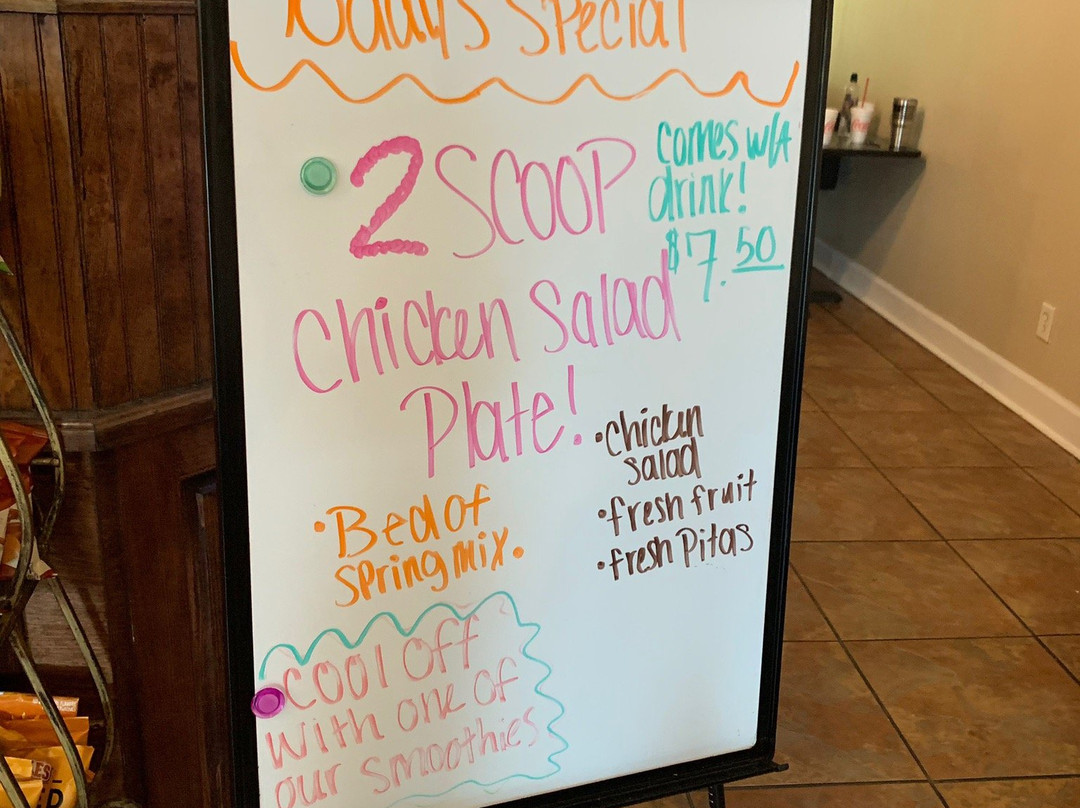 Today's Special
2 SCOOP
comes w/A
drink!
$7.50
Chicken Salad
Plate!
•Chicken
salad
•fresh fruit
•fresh Pitas
•Bed of
spring mix.
cool off
with one of
our smoothies